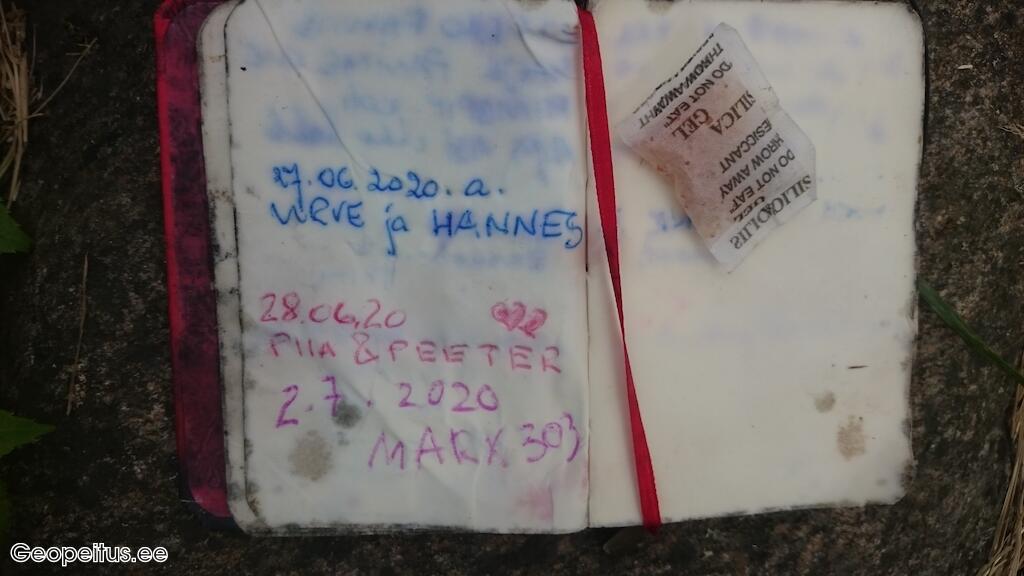 27.06.2020.a.
URVE ja HANNES
28.06.20
PIIA & PEETER
2.7. 2020
MARX 303
THROW AWAY
"DO NOT EAT"
SILICA GEL
DESICCANT
THROW AWAY
DO NOT EAT
SILICA GEL
Geopeitus.ee